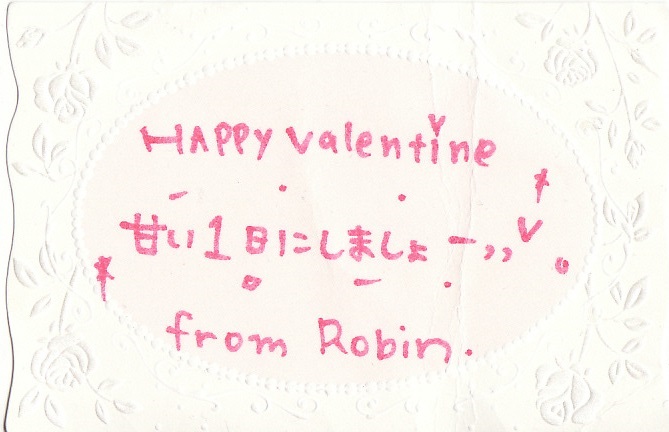 HAPPY Valentine
甘い1日にしましょー,,
from Robin.